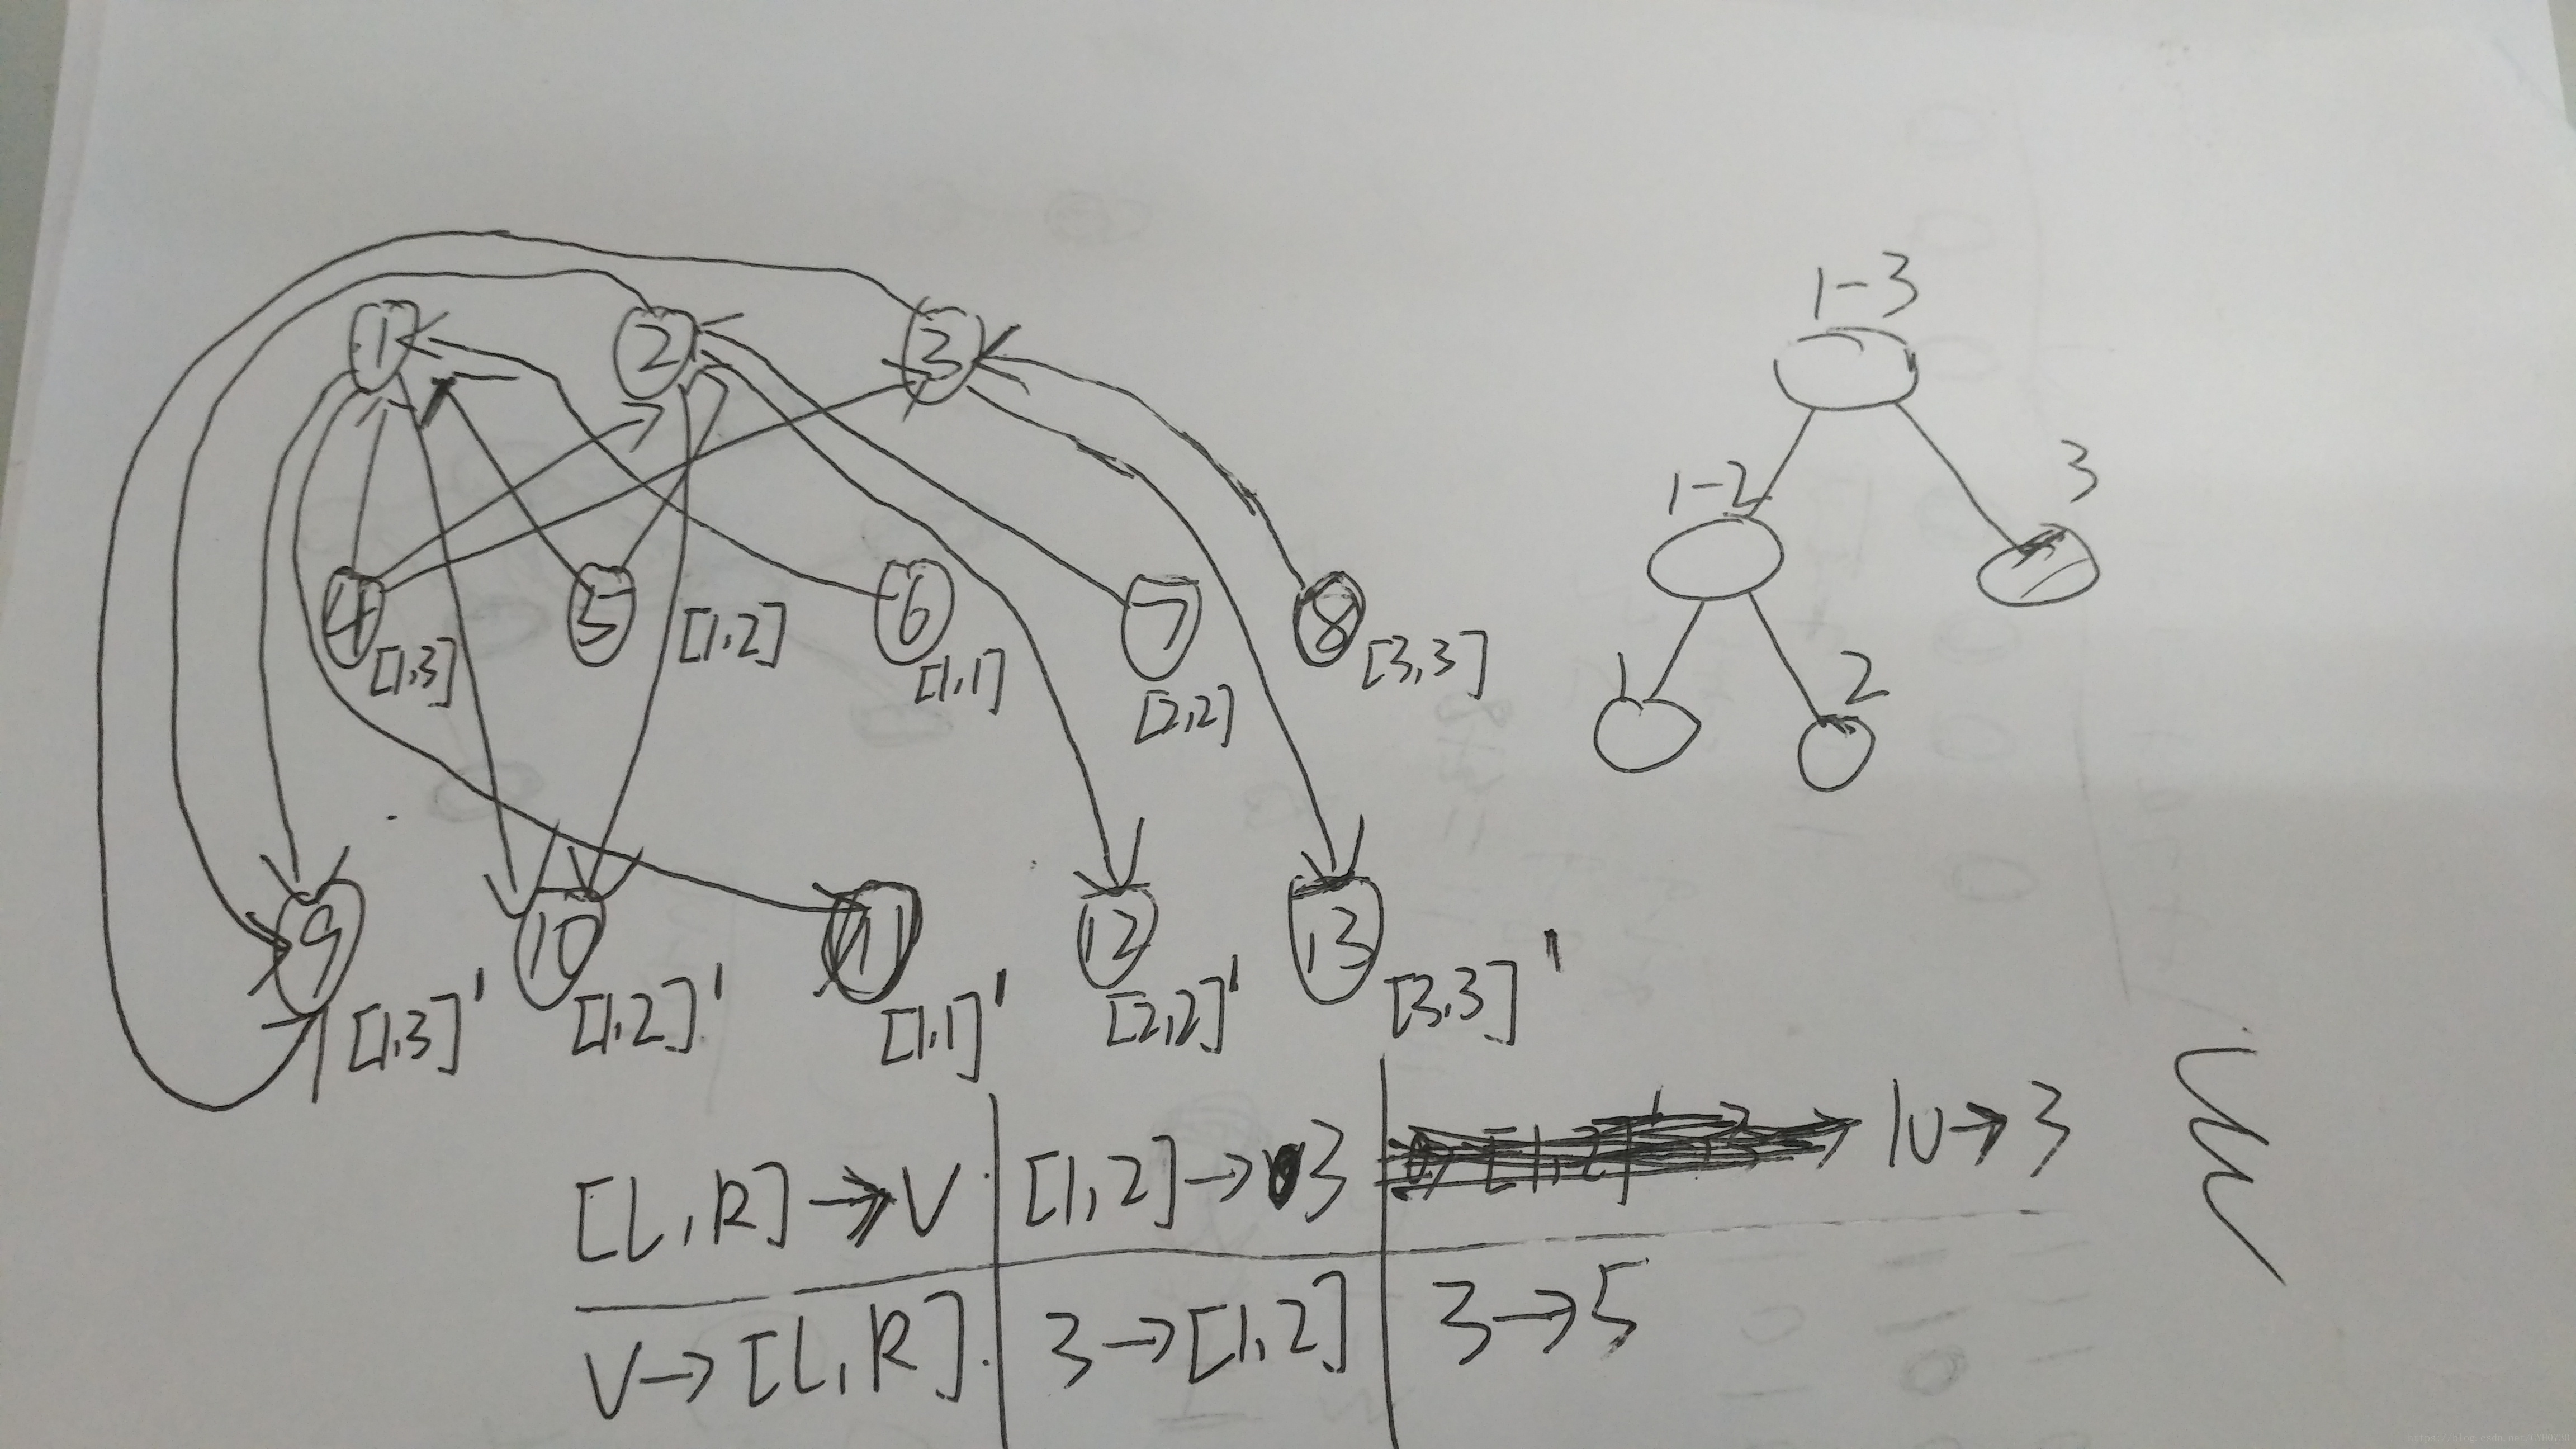 1-3
1 2 3
1-2 3
4 [1,3] 5 [1,2] 6 [1,1] 7 [2,2] 8 [3,3]
1 2
9 [1,3]' 10 [1,2]' 11 [1,1]' 12 [2,2]' 13 [3,3]'
[L,R]→V [1,2]→3 10→3
V→[L,R] 3→[1,2] 3→5